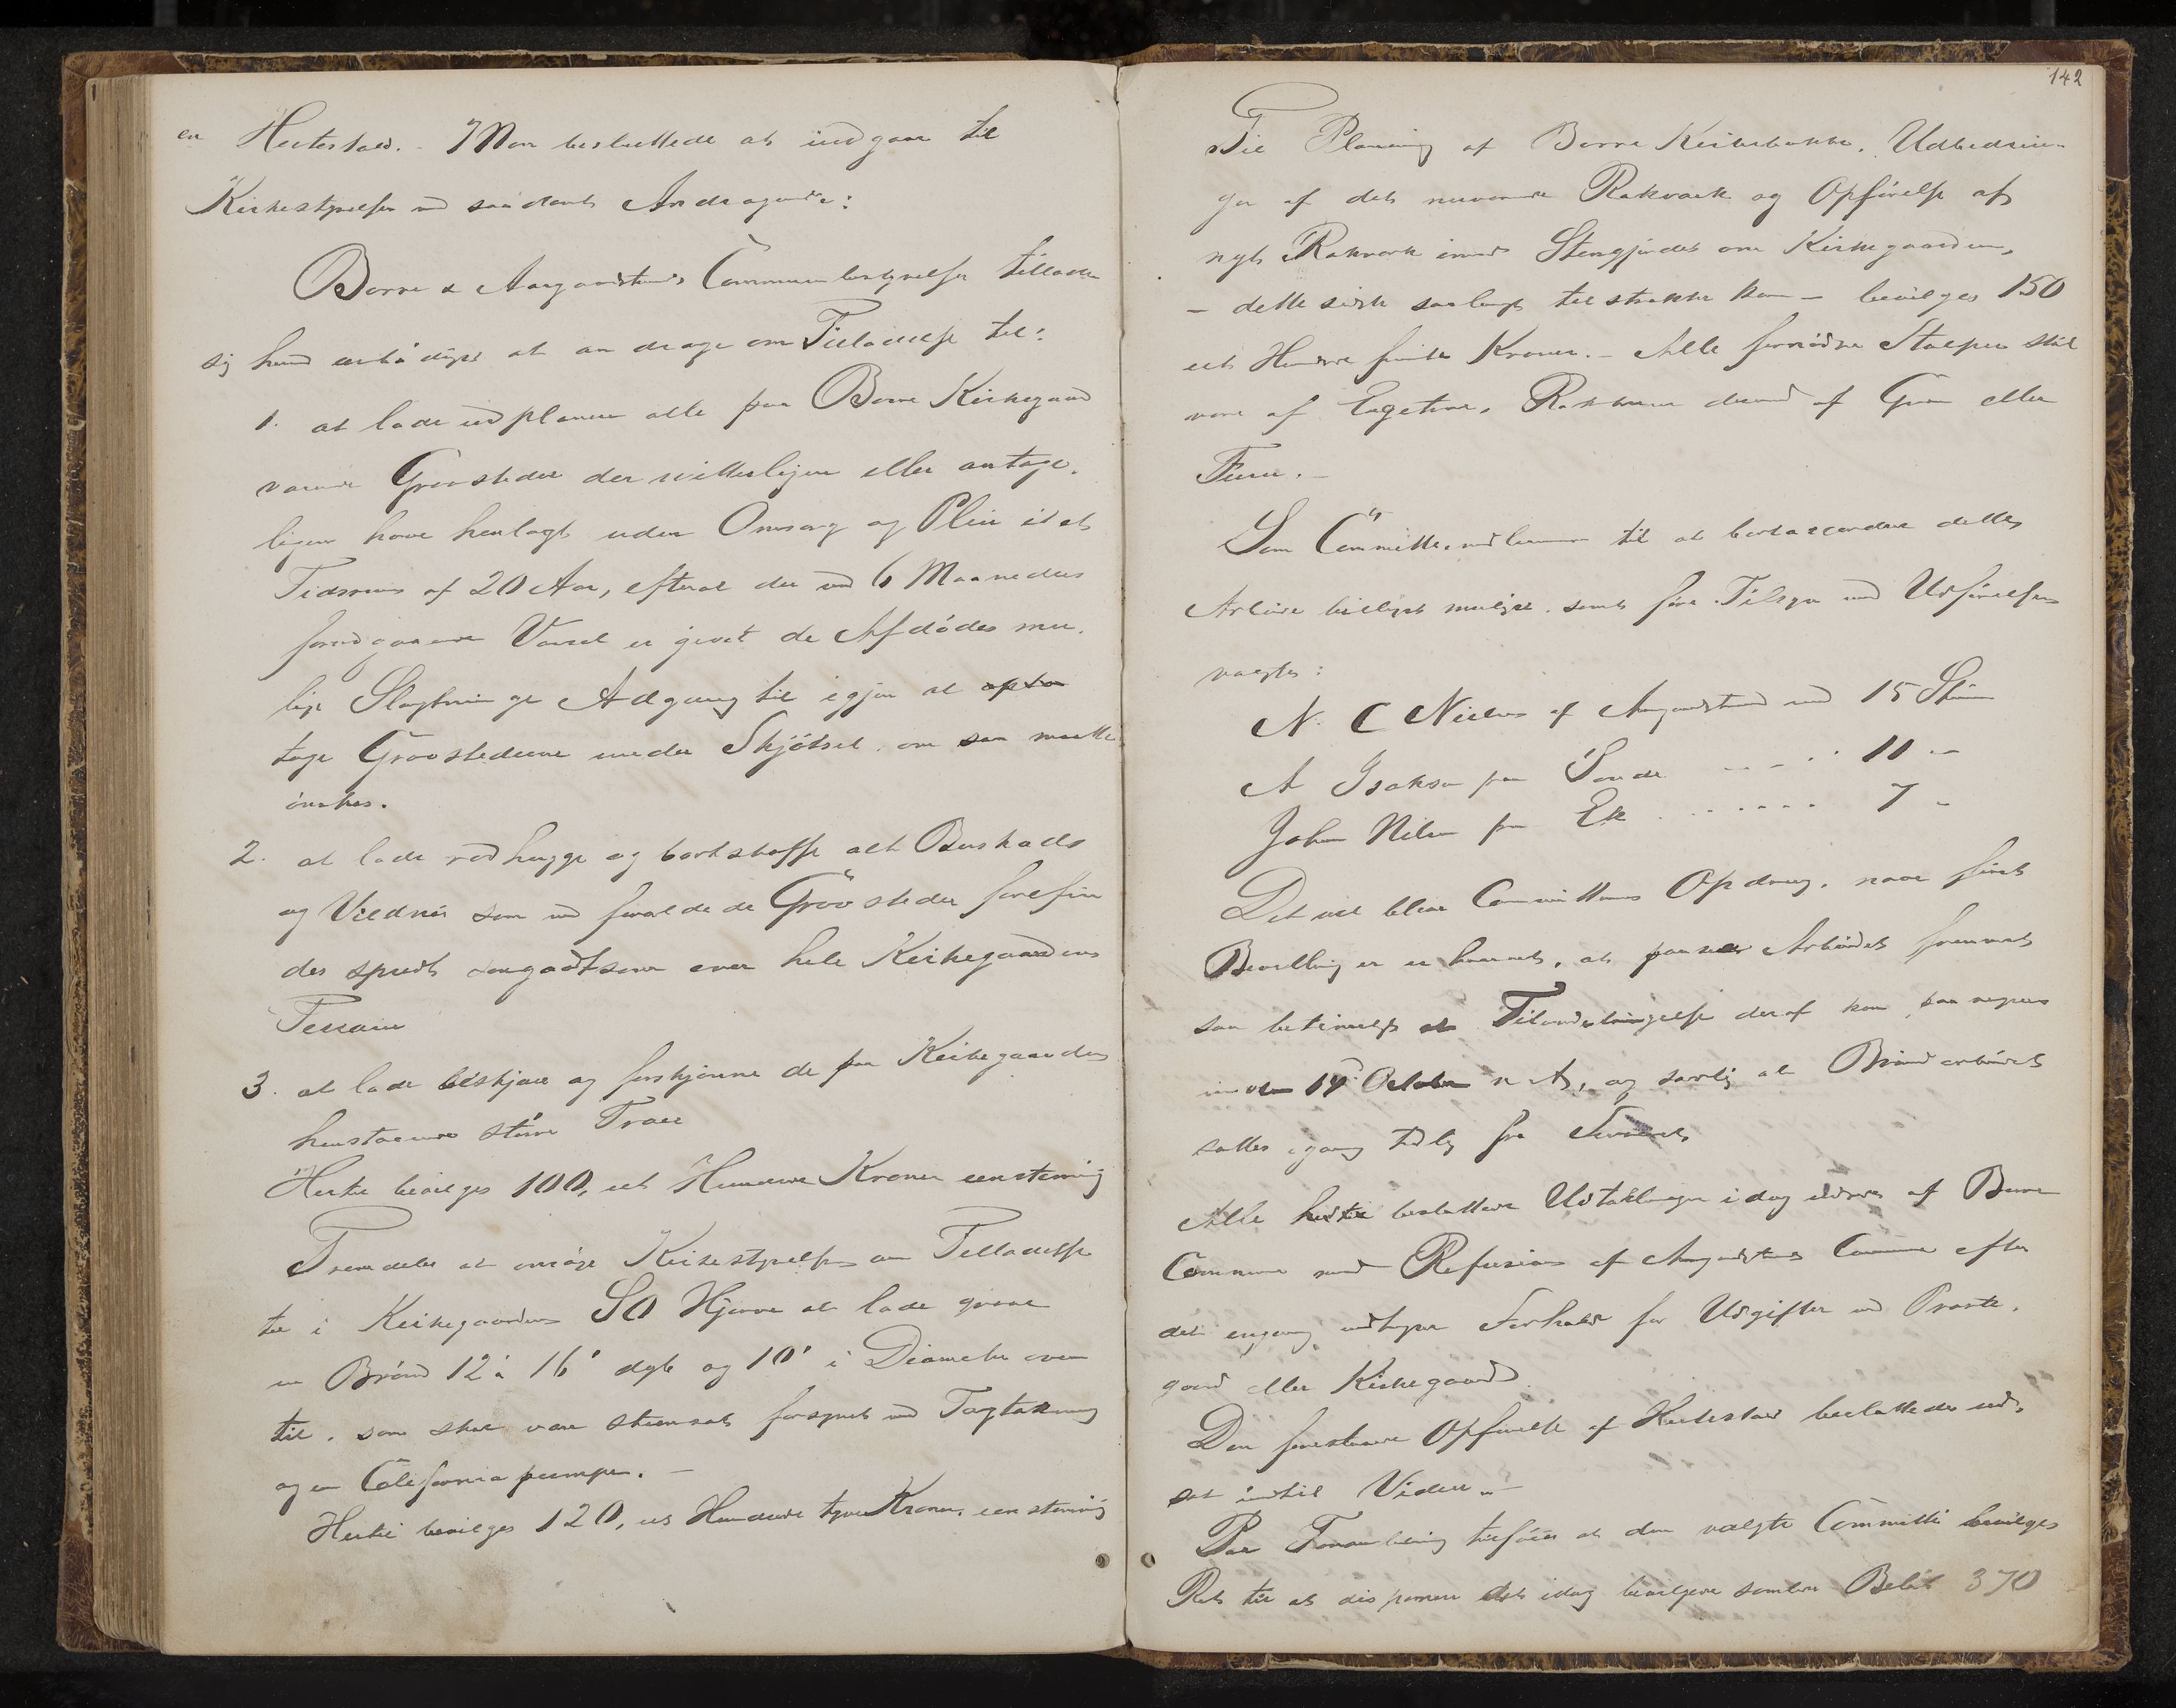 en Hestestald. - Man besluttede at indgaa til
Kirkestyrelsen med saadant Andragende:
Borre & Aasgaardstrands Communebestyrelse tillader
sig herved ærbødigst at andrage om Tilladelse til:
1. at lade udplanere alle paa Borre Kirkegaard
værende Gravsteder der vitterligen eller antage-
ligen have henlagt uden Omsorg og Pleie i et
Tidsrum af 20 Aar, efterat der med 6 Maaneders
foregaaende Varsel er givet de Afdødes mu-
lige Slægtninge Adgang til igjen at opta
tage Gravstederne under Skjøtsel, om saa maatte
ønskes.
2. at lade rødhugge og bortskaffe alt Buskads
og Vildnis som ved forældede Gravsteder forefin
des spredt omgadtsom over hele Kirkegaardens
Terrain
3. at lade beskjære og forskjønne de paa Kirkegaarden
henstaaende større Træer
Hertil bevilges 100, et Hundrede Kroner eenstemmig
Fremdeles at ansøge Kirkestyrelsen om Tilladelse
til i Kirkegaardens SO Hjørne at lade grave
en Brønd 12 à 16' dyb og 10' i Diameter oven
til, som skal være steensat forsynet med Tagtækning
og en Californiapumpe. -
Hertil bevilges 120, et Hundrede tyve Kroner, eenstemmig
142
Til Planering af Borre Kirkebakke, Udbedrin-
ger af det nuværende Rækværk og Opførelse af
nyt Rækværk Stengjerdet om Kirkegaarden,
- dette sidste saalangt tilstrække kan - bevilges 150
et Hundre femti Kroner. - Alle fornødne Stolper skal
være af Egetræ, Rækkerne derimod af Gran eller
Furu. -
Som Committemedlemmer til at bortaccordere dette
Arbeide billigst muligst samt føre Tilsyn med Udførelsen
vælges:
N. C Nielsen af Aasgaardstrand med 15 Stem
A Isaksen paa Sande - - - - 11 -
Johan Nilsen paa Ek . - - - - 7 -
Det vil blive Committeens Opdrag, naar først
Bevilling er erhvervet, at paase Arbeidet fremmet
saa betimeligt at Tilendebringelse deraf kan paaregnes
inden 14de October n A, og særlig at Brøndarbeidet
sættes igang tidlig paa Sommeren
Alle hertil besluttede Udtællinger idag udredes af Borre
Commune mod Refusion af Aasgaardstrands Commune efter
det engang vedtagne Forhold for Udgifter ved Præste-
gaard eller Kirkegaard.
Den foreslaaede Opførelse af Hestestald besluttedes ud-
sat indtil Videre. -
Paa Foranledning tilføies at den valgte Committe bevilges
Ret til at disponere det idag bevilgede samlede Beløb 370